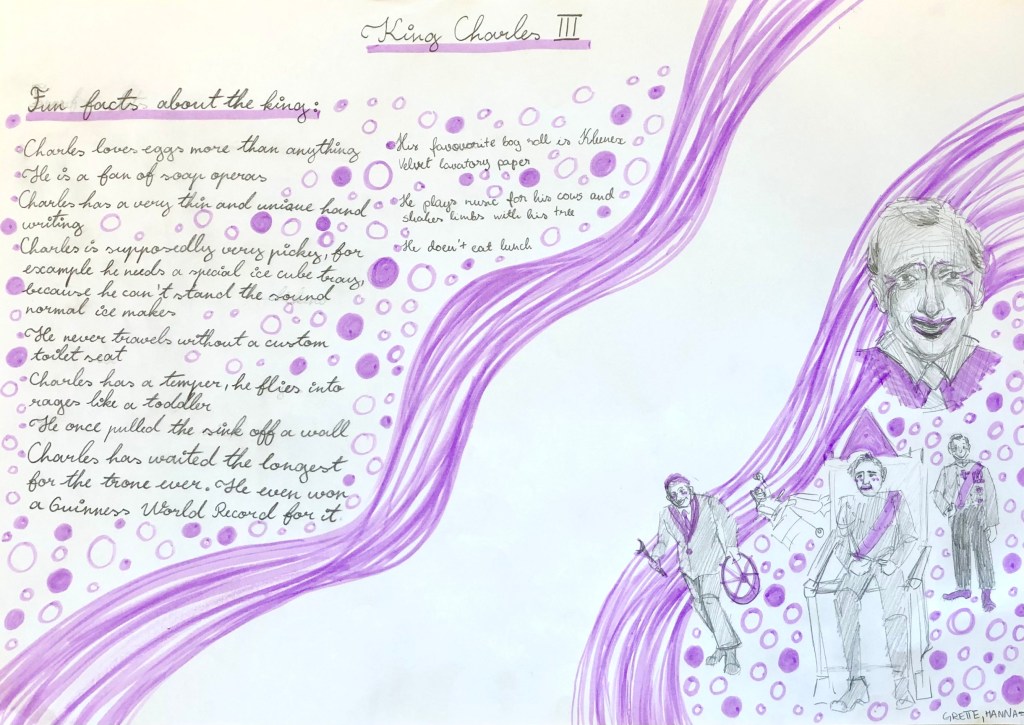 King Charles III
Fun facts about the king:
Charles loves eggs more than anything
He is a fan of soap operas
Charles has a very thin and unique hand
writing
Charles is supposedly very pickey, for
example he needs a special ice cube tray,
because he can't stand the sound
normal ice makes
He never travels without a custom
toilet seat
Charles has a temper, he flies into
rages like a toddler
He once pulled the sink off a wall
Charles has waited the longest
for the trone ever. He even won
a Guinness World Record for it.
His favourite bog roll is Kleenex
Velvet lavatory paper
He plays music for his cows and
shakes limbs with his tree
He doesn't eat lunch
GRETTE, HANNA